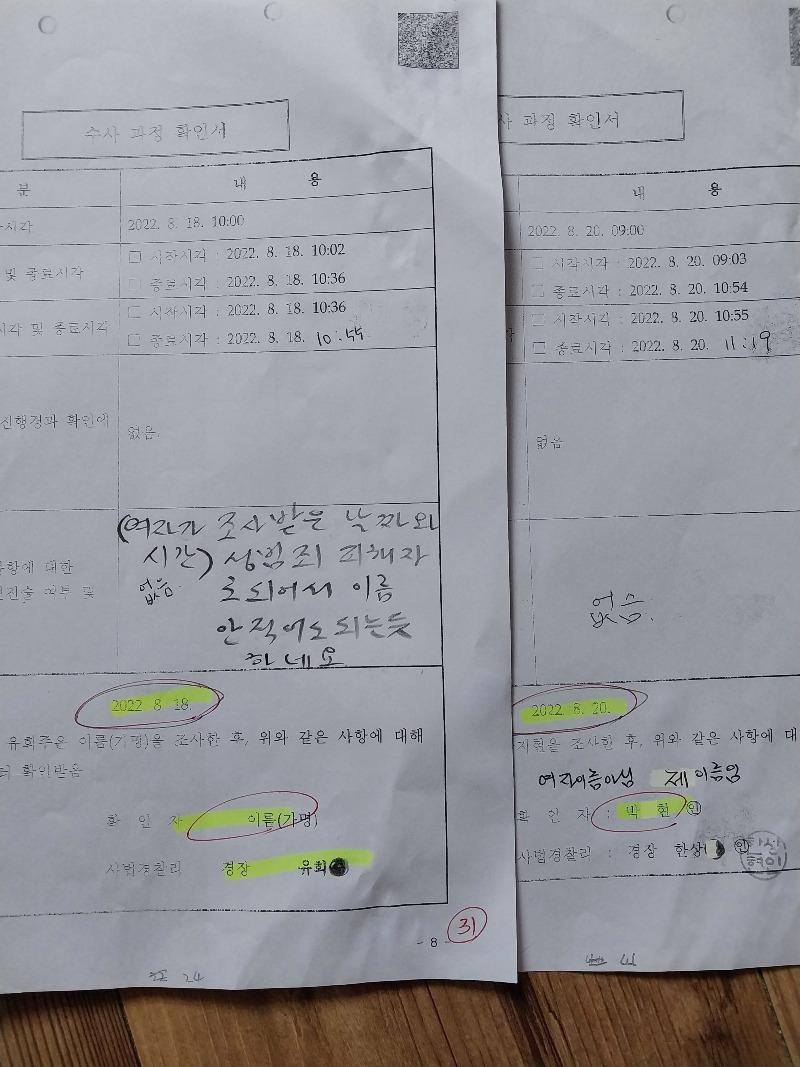 수사 과정 확인서
분
내 용
시각
2022. 8. 18. 10:00
및 종료시각
□ 시작시각 : 2022. 8. 18. 10:02
□ 종료시각 : 2022. 8. 18. 10:36
시각 및 종료시각
□ 시작시각 : 2022. 8. 18. 10:36
□ 종료시각 : 2022. 8. 18. 10:55
진행경과 확인에
없음.
(여자가 조사받은 날짜와
시간) 성범죄 피해자
없음. 로되어서 이름
안적어도되는듯
하네요
항에 대한
진술 여부 및
2022 8 18.
유희주은 이름(가명)을 조사한 후, 위와 같은 사항에 대해
터 확인받음
확 인 자 이름(가명)
사법경찰리 경장 유희
- 8 -
31
24
사 과정 확인서
내 용
2022. 8. 20. 09:00
□ 시작시각 : 2022. 8. 20. 09:03
□ 종료시각 : 2022. 8. 20. 10:54
□ 시작시각 : 2022. 8. 20. 10:55
□ 종료시각 : 2022. 8. 20. 11:19
없음
없음.
2022. 8. 20.
지현을 조사한 후, 위와 같은 사항에 대
여자이름아님 제이름임
확 인 자 : 박 현 인
사법경찰리 : 경장 한상 인